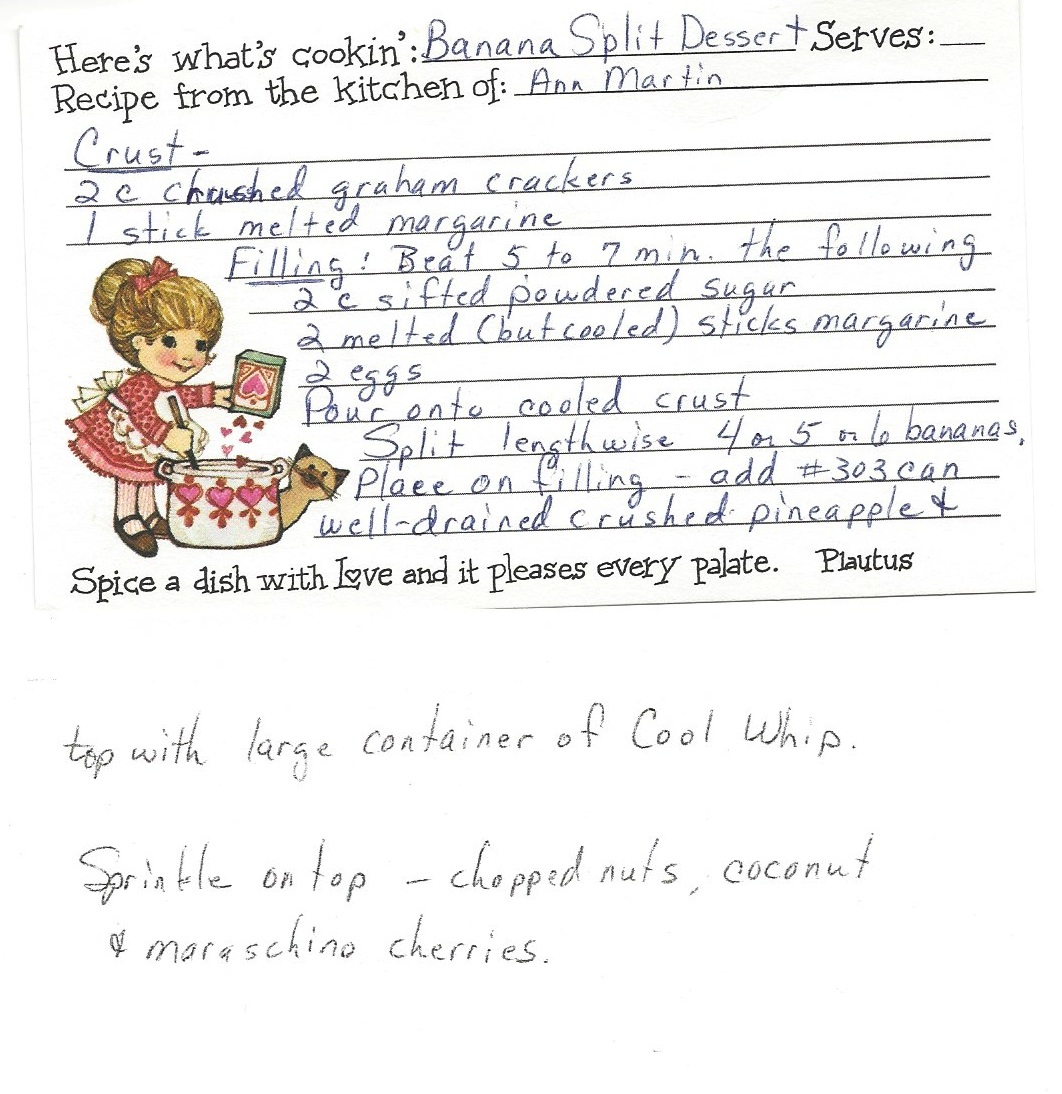 Here's what's cookin': Banana Split Dessert Serves:
Recipe from the kitchen of: Ann Martin
Crust -
2 c chrushed graham crackers
1 stick melted margarine
Filling: Beat 5 to 7 min. the following
2 c sifted powdered sugar
2 melted (but cooled) sticks margarine
2 eggs
Pour onto cooled crust
Split lengthwise 4 or 5 or 6 bananas,
Place on filling - add #303 can
well-drained crushed pineapple &
Spice a dish with Love and it pleases every palate. Plautus
top with large container of Cool Whip.
Sprinkle on top - chopped nuts, coconut
& maraschino cherries.